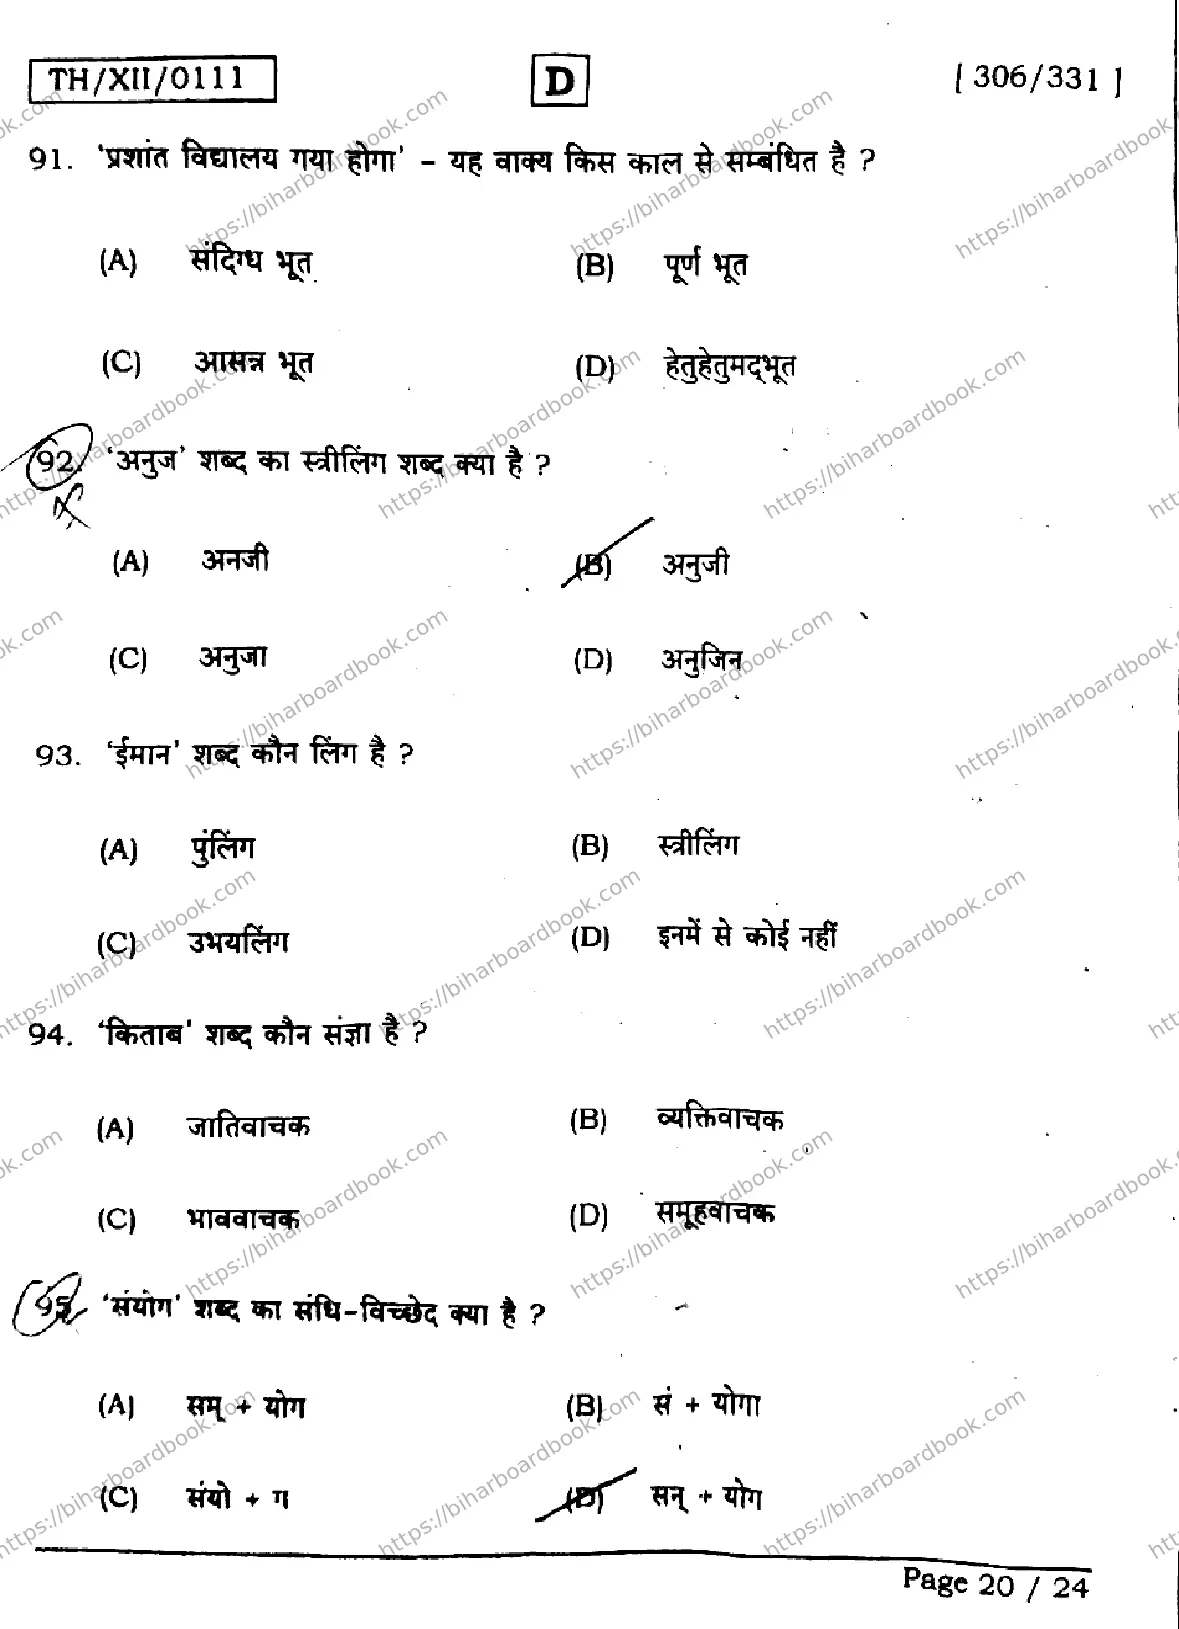 TH/XII/0111 D [ 306/331 ]
91. 'प्रशांत विद्यालय गया होगा' – यह वाक्य किस काल से सम्बंधित है ?
(A) संदिग्ध भूत (B) पूर्ण भूत
(C) आसन्न भूत (D) हेतुहेतुमद्भूत
92. 'अनुज' शब्द का स्त्रीलिंग शब्द क्या है ?
(A) अनजी (B) अनुजी
(C) अनुजा (D) अनुजिन
93. 'ईमान' शब्द कौन लिंग है ?
(A) पुंलिंग (B) स्त्रीलिंग
(C) उभयलिंग (D) इनमें से कोई नहीं
94. 'किताब' शब्द कौन संज्ञा है ?
(A) जातिवाचक (B) व्यक्तिवाचक
(C) भाववाचक (D) समूहवाचक
95. 'संयोग' शब्द का संधि-विच्छेद क्या है ?
(A) सम् + योग (B) सं + योगा
(C) संयो + ग (D) सन् + योग
Page 20 / 24
https://biharboardbook.com